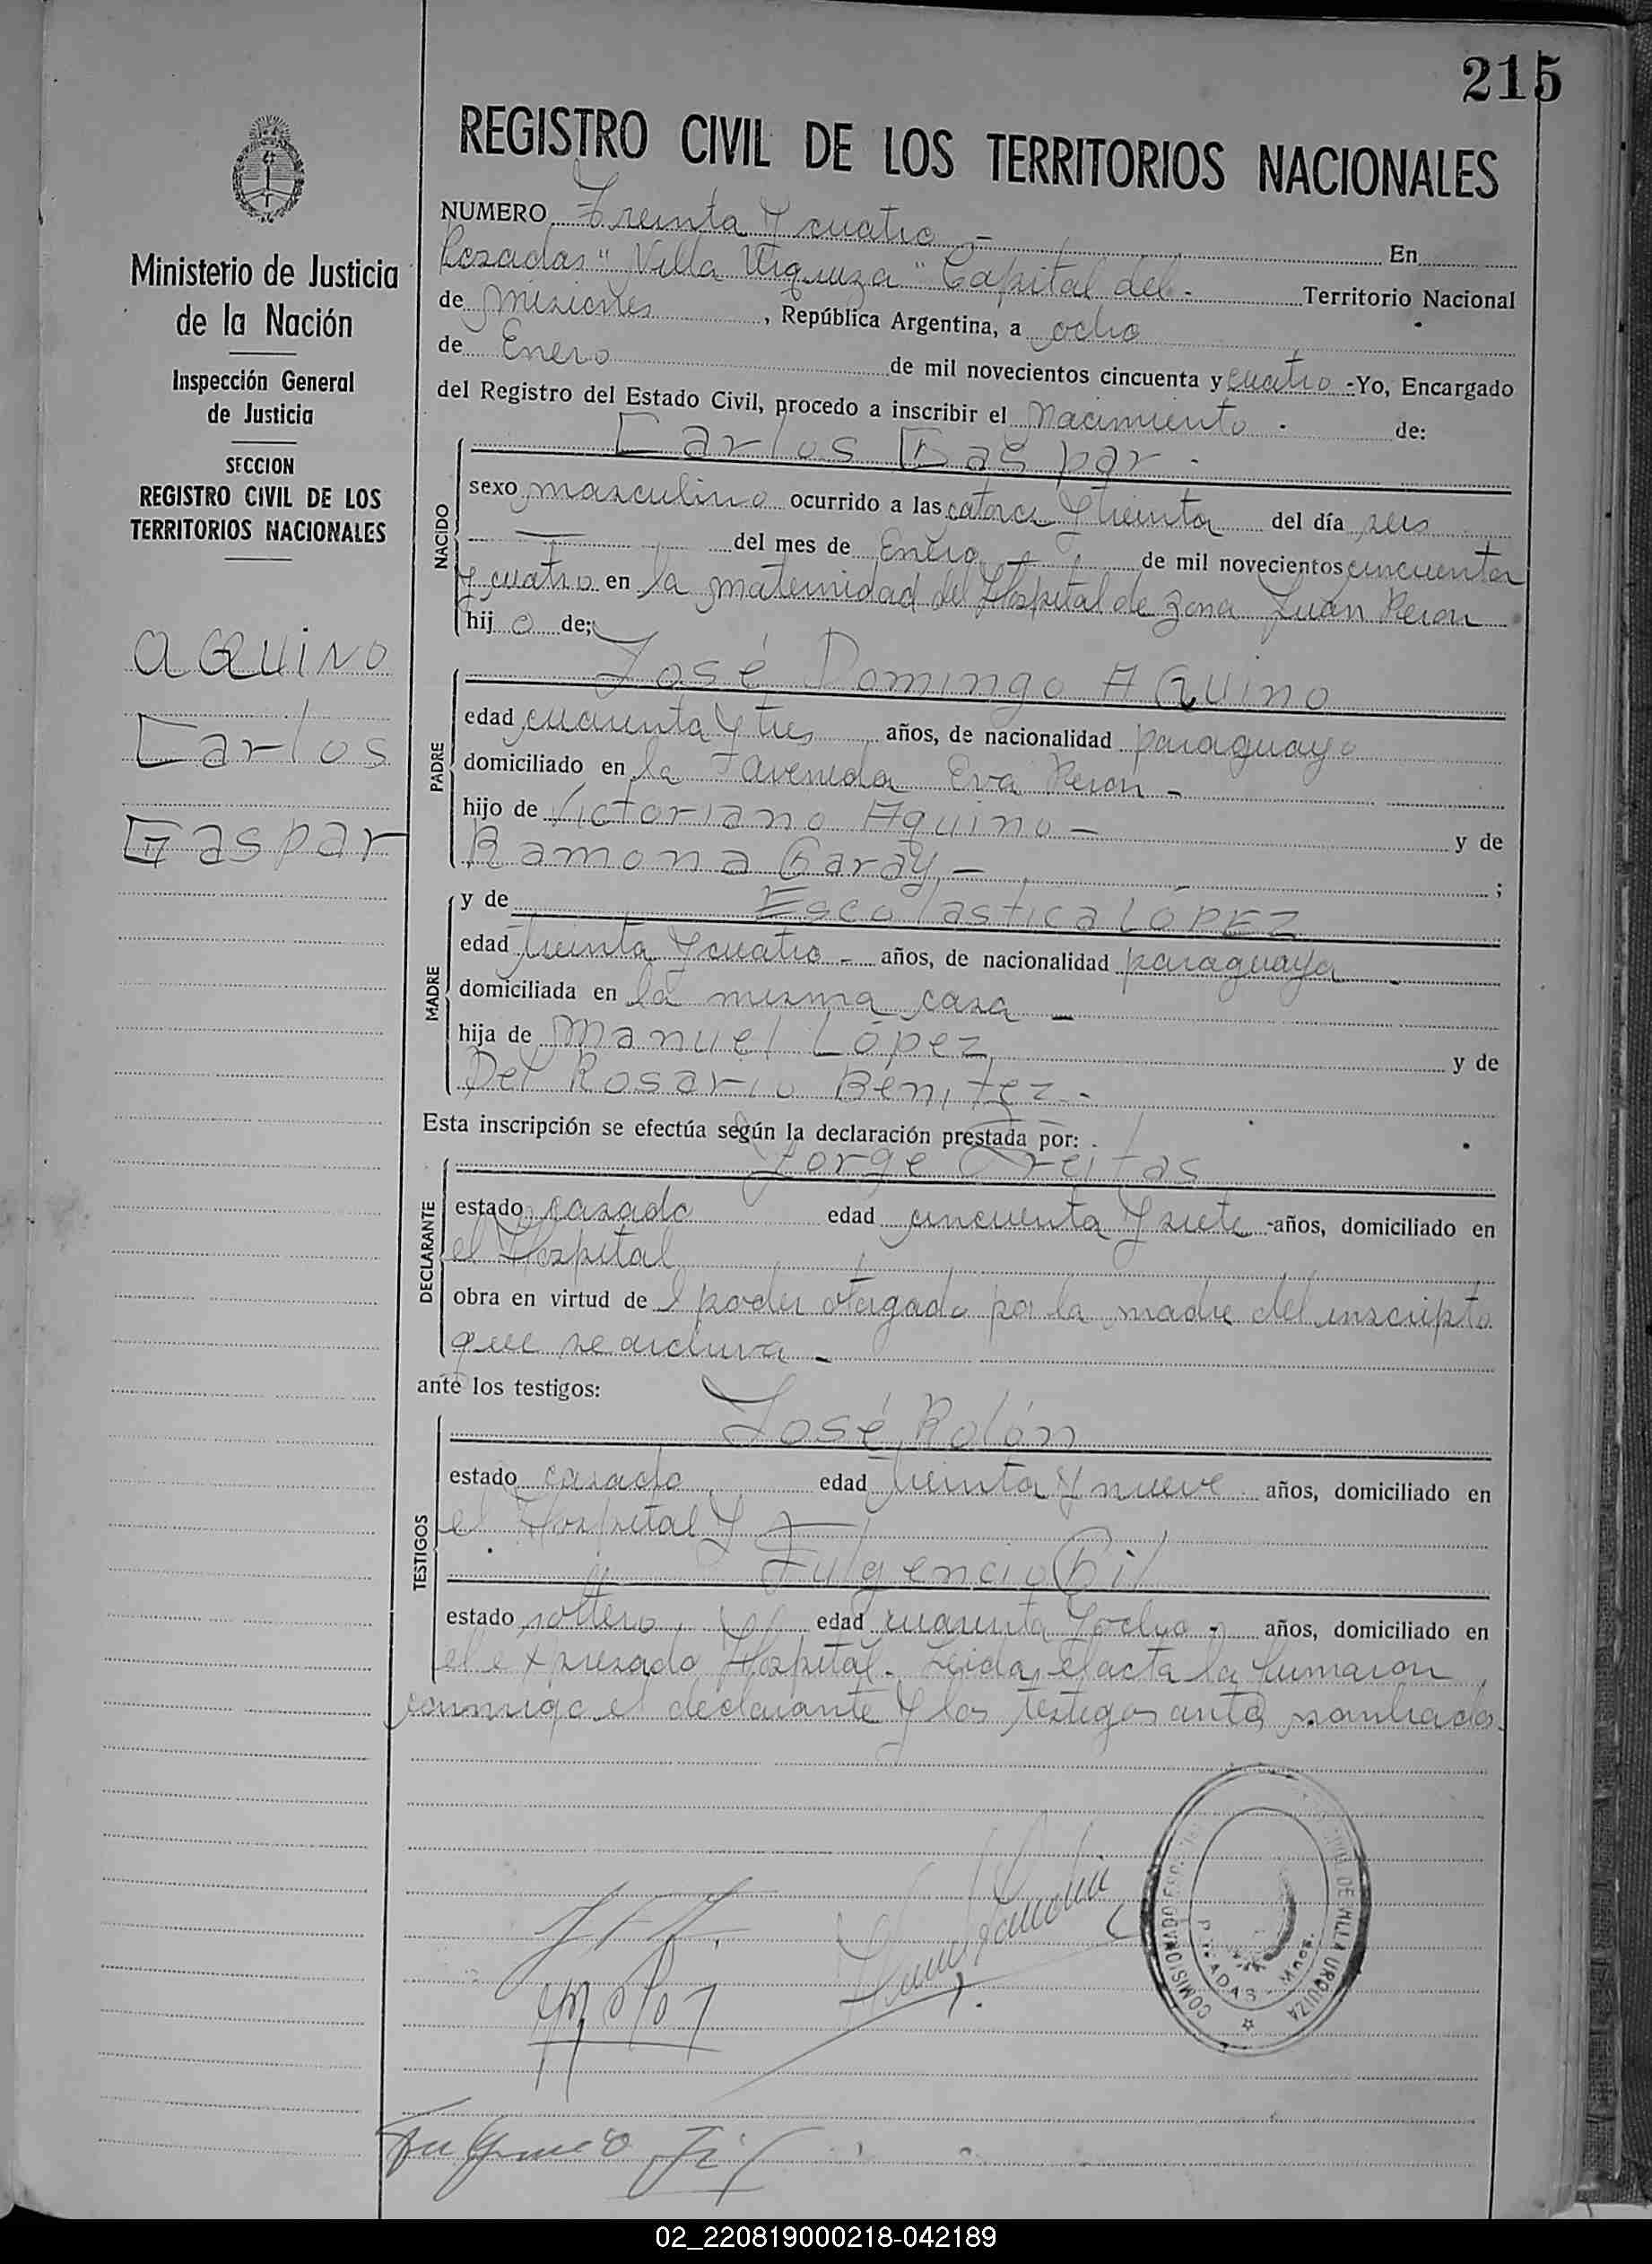 215
REGISTRO CIVIL DE LOS TERRITORIOS NACIONALES
Ministerio de Justicia
de la Nación
Inspección General
de Justicia
SECCION
REGISTRO CIVIL DE LOS
TERRITORIOS NACIONALES
AQUINO
Carlos
Gaspar
NUMERO Treinta y cuatro - En
Posadas "Villa Urquiza" Capital del - Territorio Nacional
de Misiones, República Argentina, a ocho
de Enero de mil novecientos cincuenta y cuatro - Yo, Encargado
del Registro del Estado Civil, procedo a inscribir el Nacimiento - de:
Carlos Gaspar -
NACIDO
sexo masculino ocurrido a las catorce y treinta del día seis
del mes de Enero - de mil novecientos cincuenta
y cuatro en la maternidad del Hospital de Zona Juan Peron
hijo de;
José Domingo AQuino
PADRE
edad cuarenta y tres años, de nacionalidad paraguayo
domiciliado en la Avenida Eva Peron -
hijo de Victoriano Aquino - y de
Ramona Garay, - ;
MADRE
y de Escolastica LÓPEZ
edad treinta y cuatro - años, de nacionalidad paraguaya -
domiciliada en la misma casa -
hija de Manuel López y de
Del Rosario Benítez -
Esta inscripción se efectúa según la declaración prestada por:
Jorge Freitas
DECLARANTE
estado casado edad cincuenta y siete - años, domiciliado en
el Hospital
obra en virtud del poder otorgado por la madre del inscripto
que se archiva -
ante los testigos:
José Rolón
TESTIGOS
estado casado edad treinta y nueve años, domiciliado en
el Hospital y
Fulgencio Gil
estado soltero edad cuarenta y ocho - años, domiciliado en
el expresado Hospital - Leida el acta la firmaron
conmigo el declarante y los testigos antes nombrados.
COMISIONADO DE VILLA URQUIZA
POSADAS - Mnes.
Fulgencio Gil
02_220819000218-042189